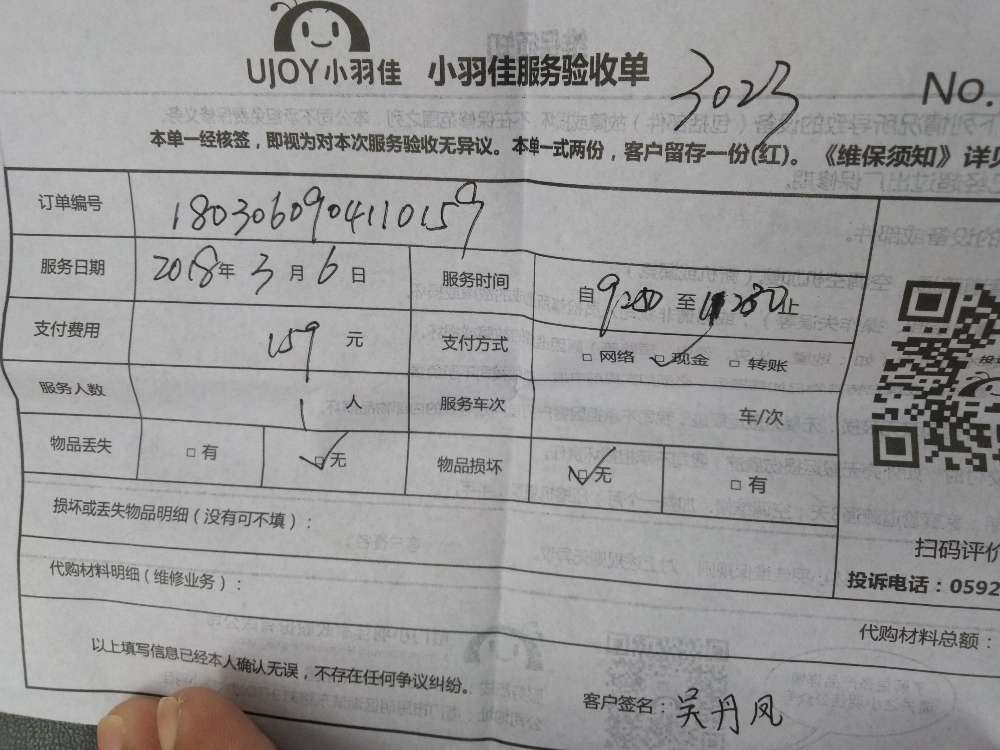 UJOY小羽佳 小羽佳服务验收单 3023 No.
本单一经核签，即视为对本次服务验收无异议。本单一式两份，客户留存一份(红)。《维保须知》详见
订单编号 1803060904110159
服务日期 2018年3月6日 服务时间 自9:30至11:30止
支付费用 159元 支付方式 □网络 ☑现金 □转账
服务人数 1人 服务车次 车/次
物品丢失 □有 ☑无 物品损坏 ☑无 □有
损坏或丢失物品明细（没有可不填）：
扫码评价
代购材料明细（维修业务）：
投诉电话：0592
代购材料总额：
以上填写信息已经本人确认无误，不存在任何争议纠纷。
客户签名：吴丹凤